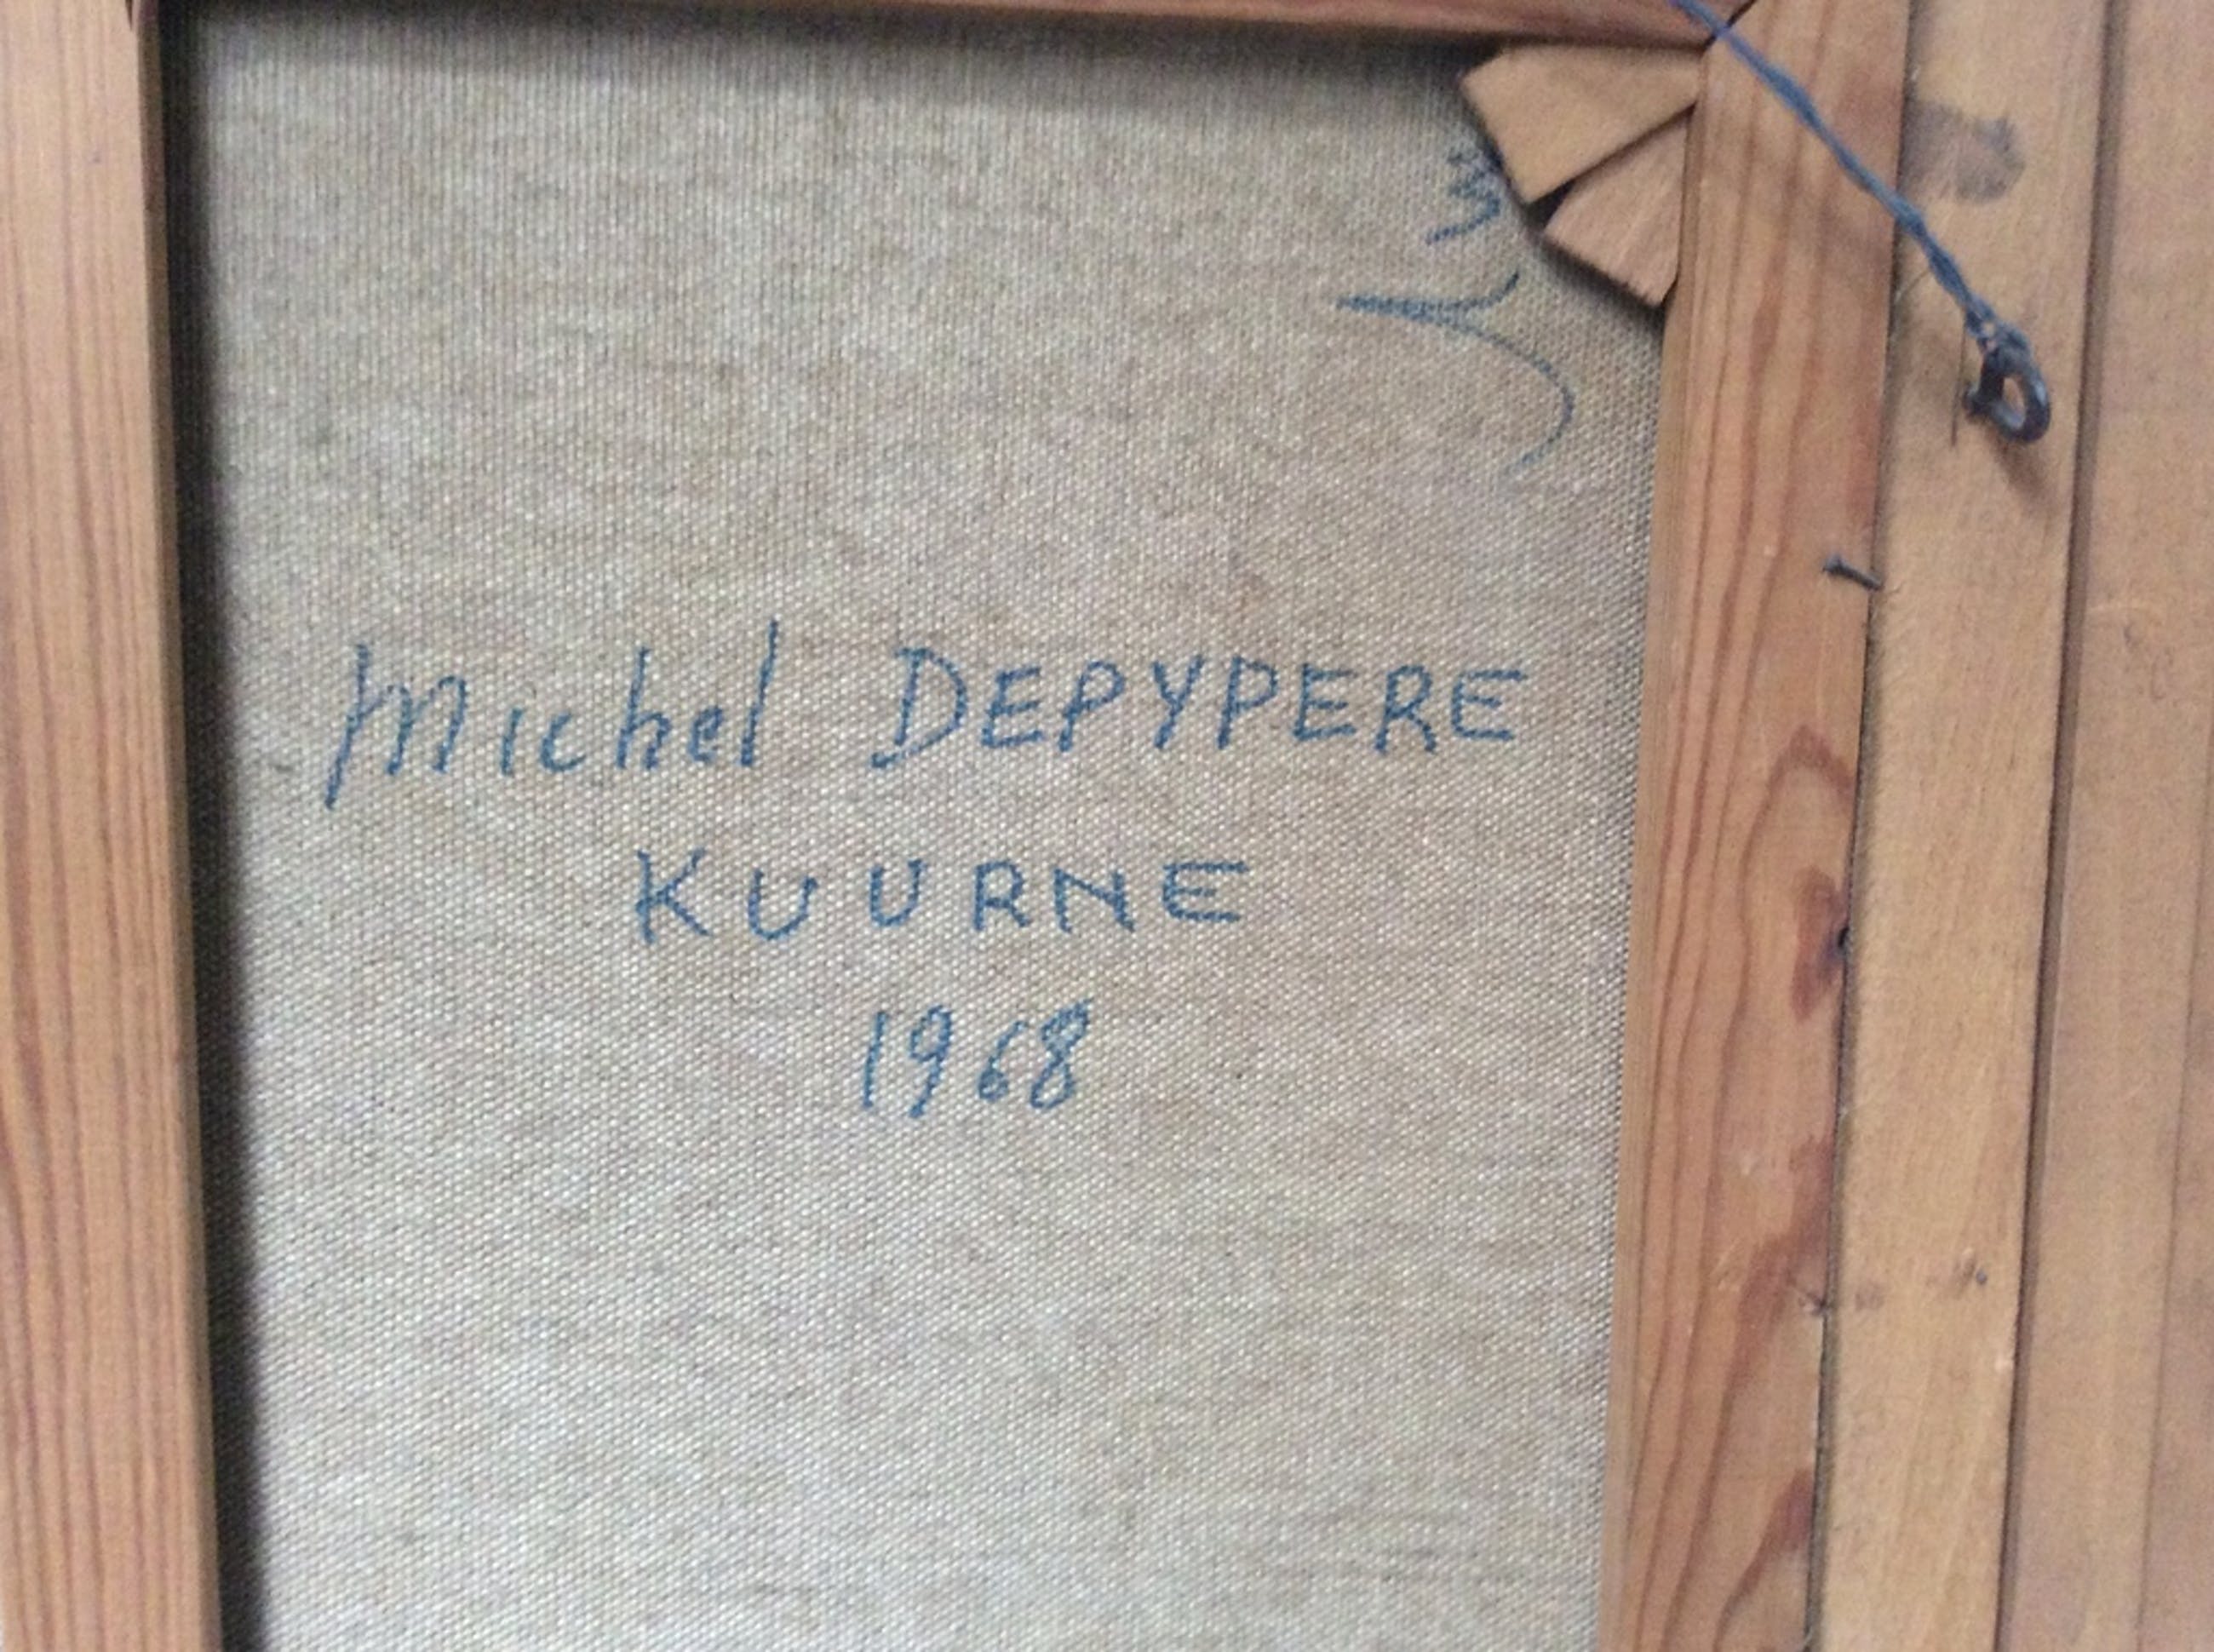 Michel DEPYPERE
KUURNE
1968